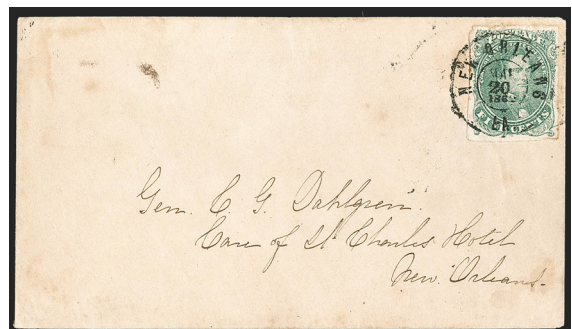 POSTAGE
NEW ORLEANS
MAI
20
186
LA
FIVE CENTS
Gen. C G. Dahlgren.
Care of St Charles Hotel
New Orleans.